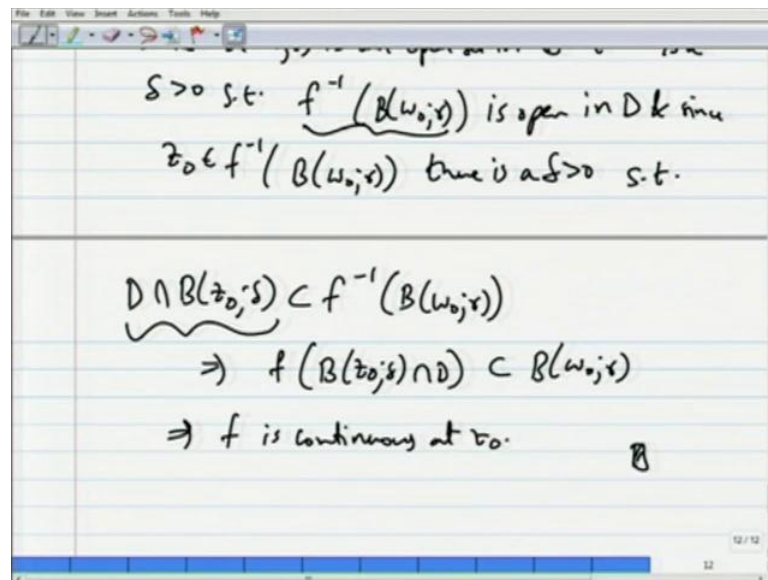 File Edit View Insert Actions Tools Help
is an open set in
δ>0 s.t. f⁻¹(B(w₀;r)) is open in D & since
z₀ ∈ f⁻¹(B(w₀;r)) there is a δ>0 s.t.
D ∩ B(z₀;δ) ⊂ f⁻¹(B(w₀;r))
⇒ f(B(z₀;δ) ∩ D) ⊂ B(w₀;r)
⇒ f is continuous at z₀.
12/12
12